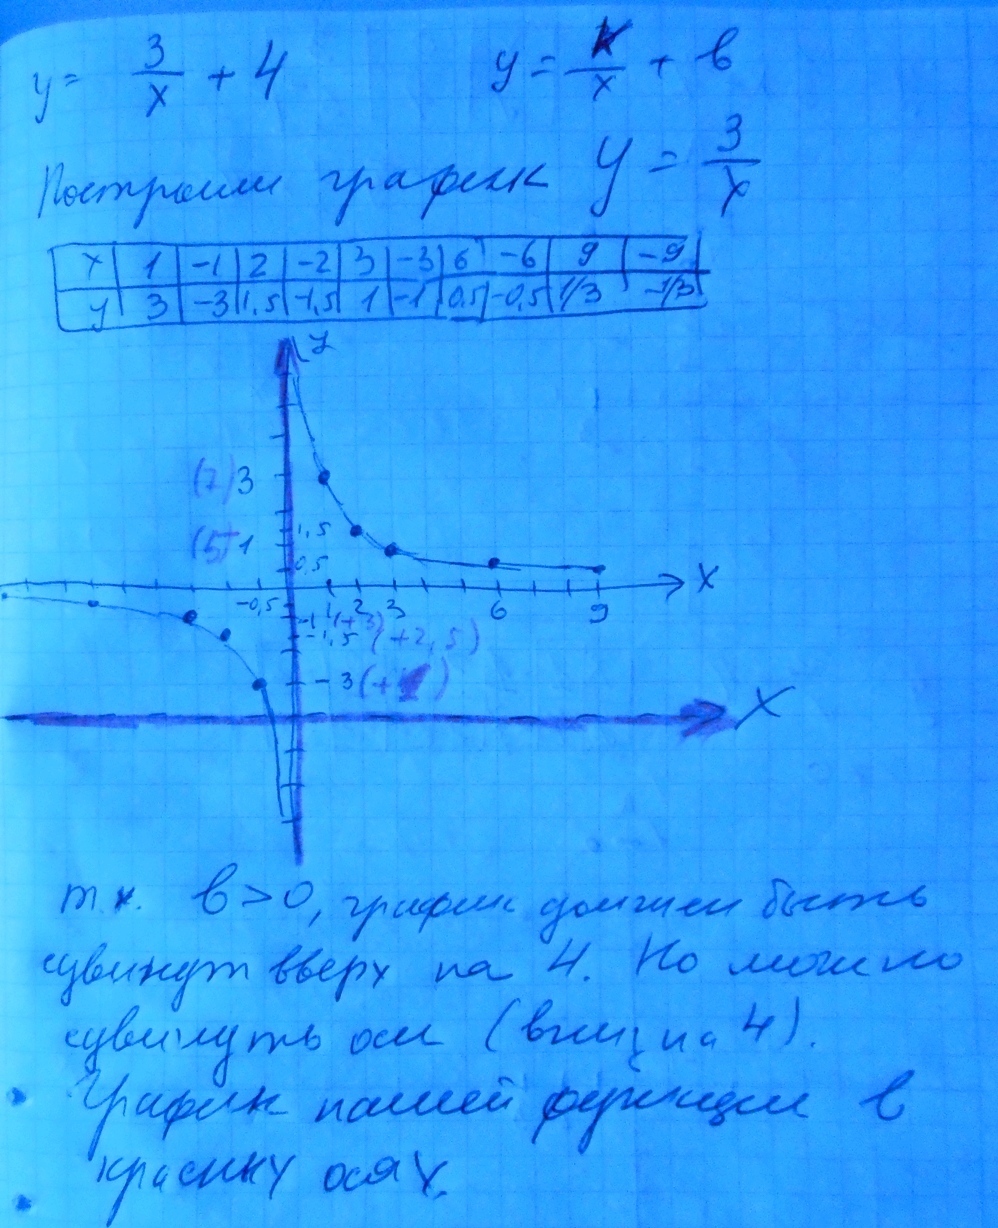 y = 3/x + 4 y = k/x + b
Построим график y = 3/x
x 1 -1 2 -2 3 -3 6 -6 9 -9
y 3 -3 1,5 -1,5 1 -1 0,5 -0,5 1/3 -1/3
y
(7) 3
1,5
(5) 1
0,5
x
-0,5 1 2 3 6 9
-1 (+3)
-1,5 (+2,5)
-3 (+1)
x
т.к. b>0, график должен быть
сдвинут вверх на 4. Но можно
сдвинуть оси (вниз на 4).
График нашей функции в
красных осях.